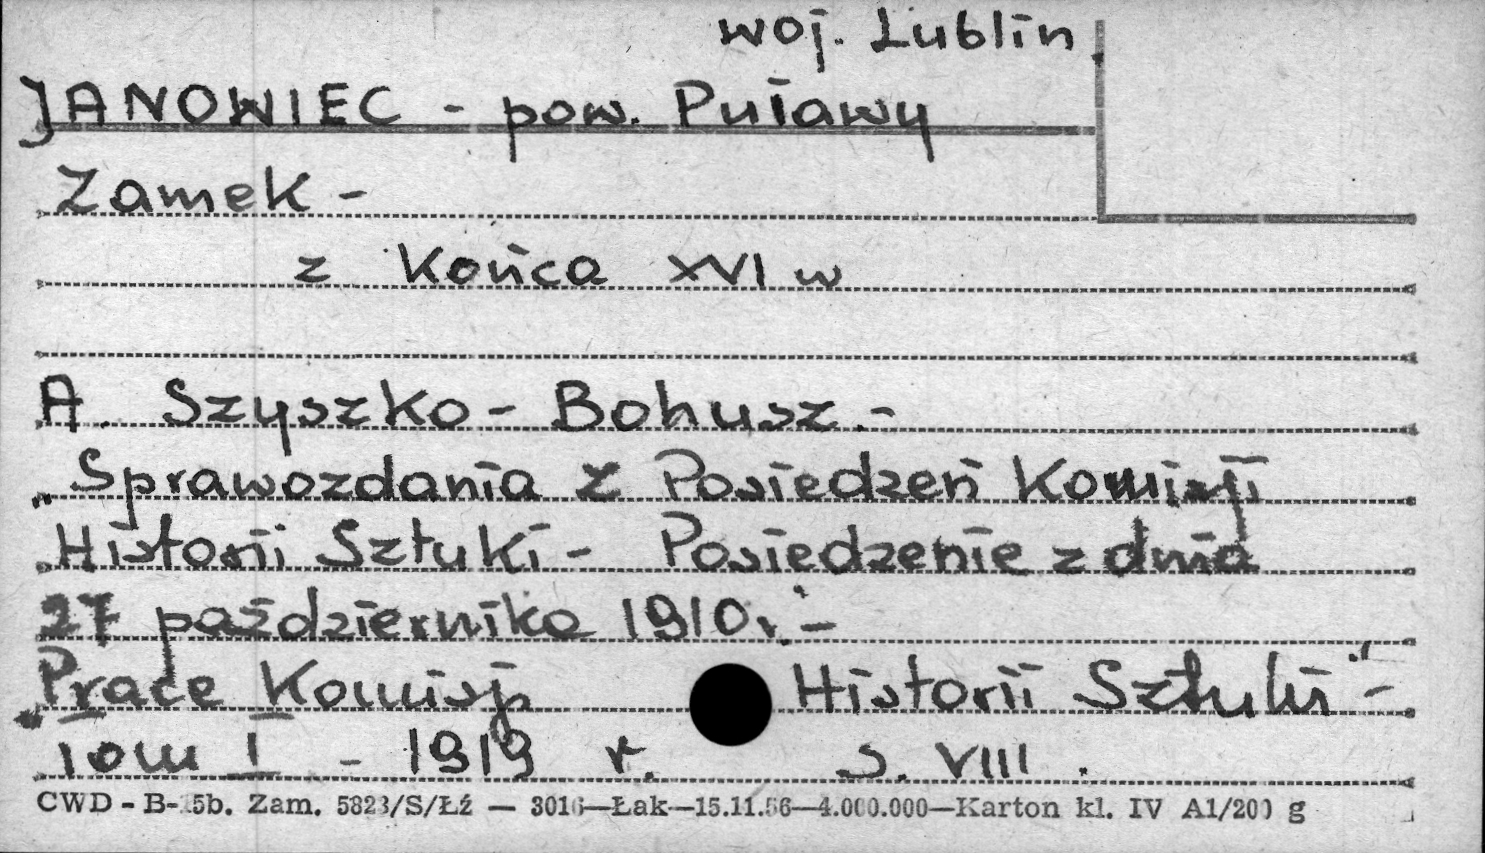 woj. Lublin.
JANOWIEC - pow. Puławy
Zamek -
z Końca XVI w
A. Szyszko - Bohusz. -
„Sprawozdania z Posiedzeń Komisji
Historii Sztuki - Posiedzenie z dnia
27 października 1910 r." -
„Prace Komisji Historii Sztuki" -
Tom I - 1919 r. s. VIII.
CWD - B-15b. Zam. 5823/S/Łź — 3016—Łak—15.11.56—4.000.000—Karton kl. IV A1/200 g